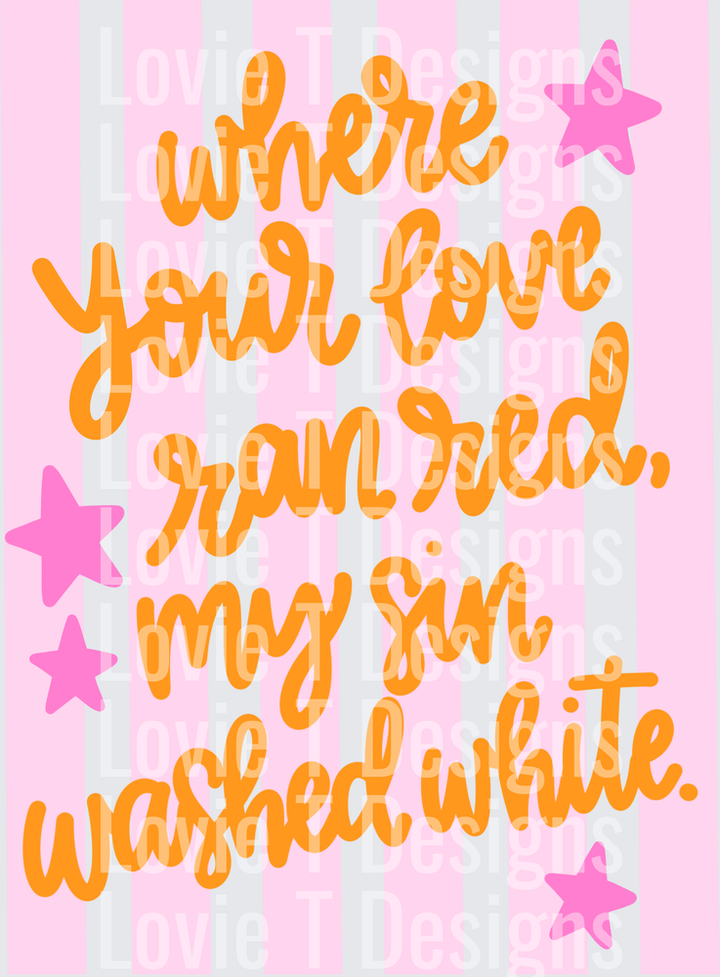 where
your love
ran red,
my sin
washed white.
Lovie T Designs
Lovie T Designs
Lovie T Designs
Lovie T Designs
Lovie T Designs
Lovie T Designs
Lovie T Designs
Lovie T Designs
Lovie T Designs
Lovie T Designs